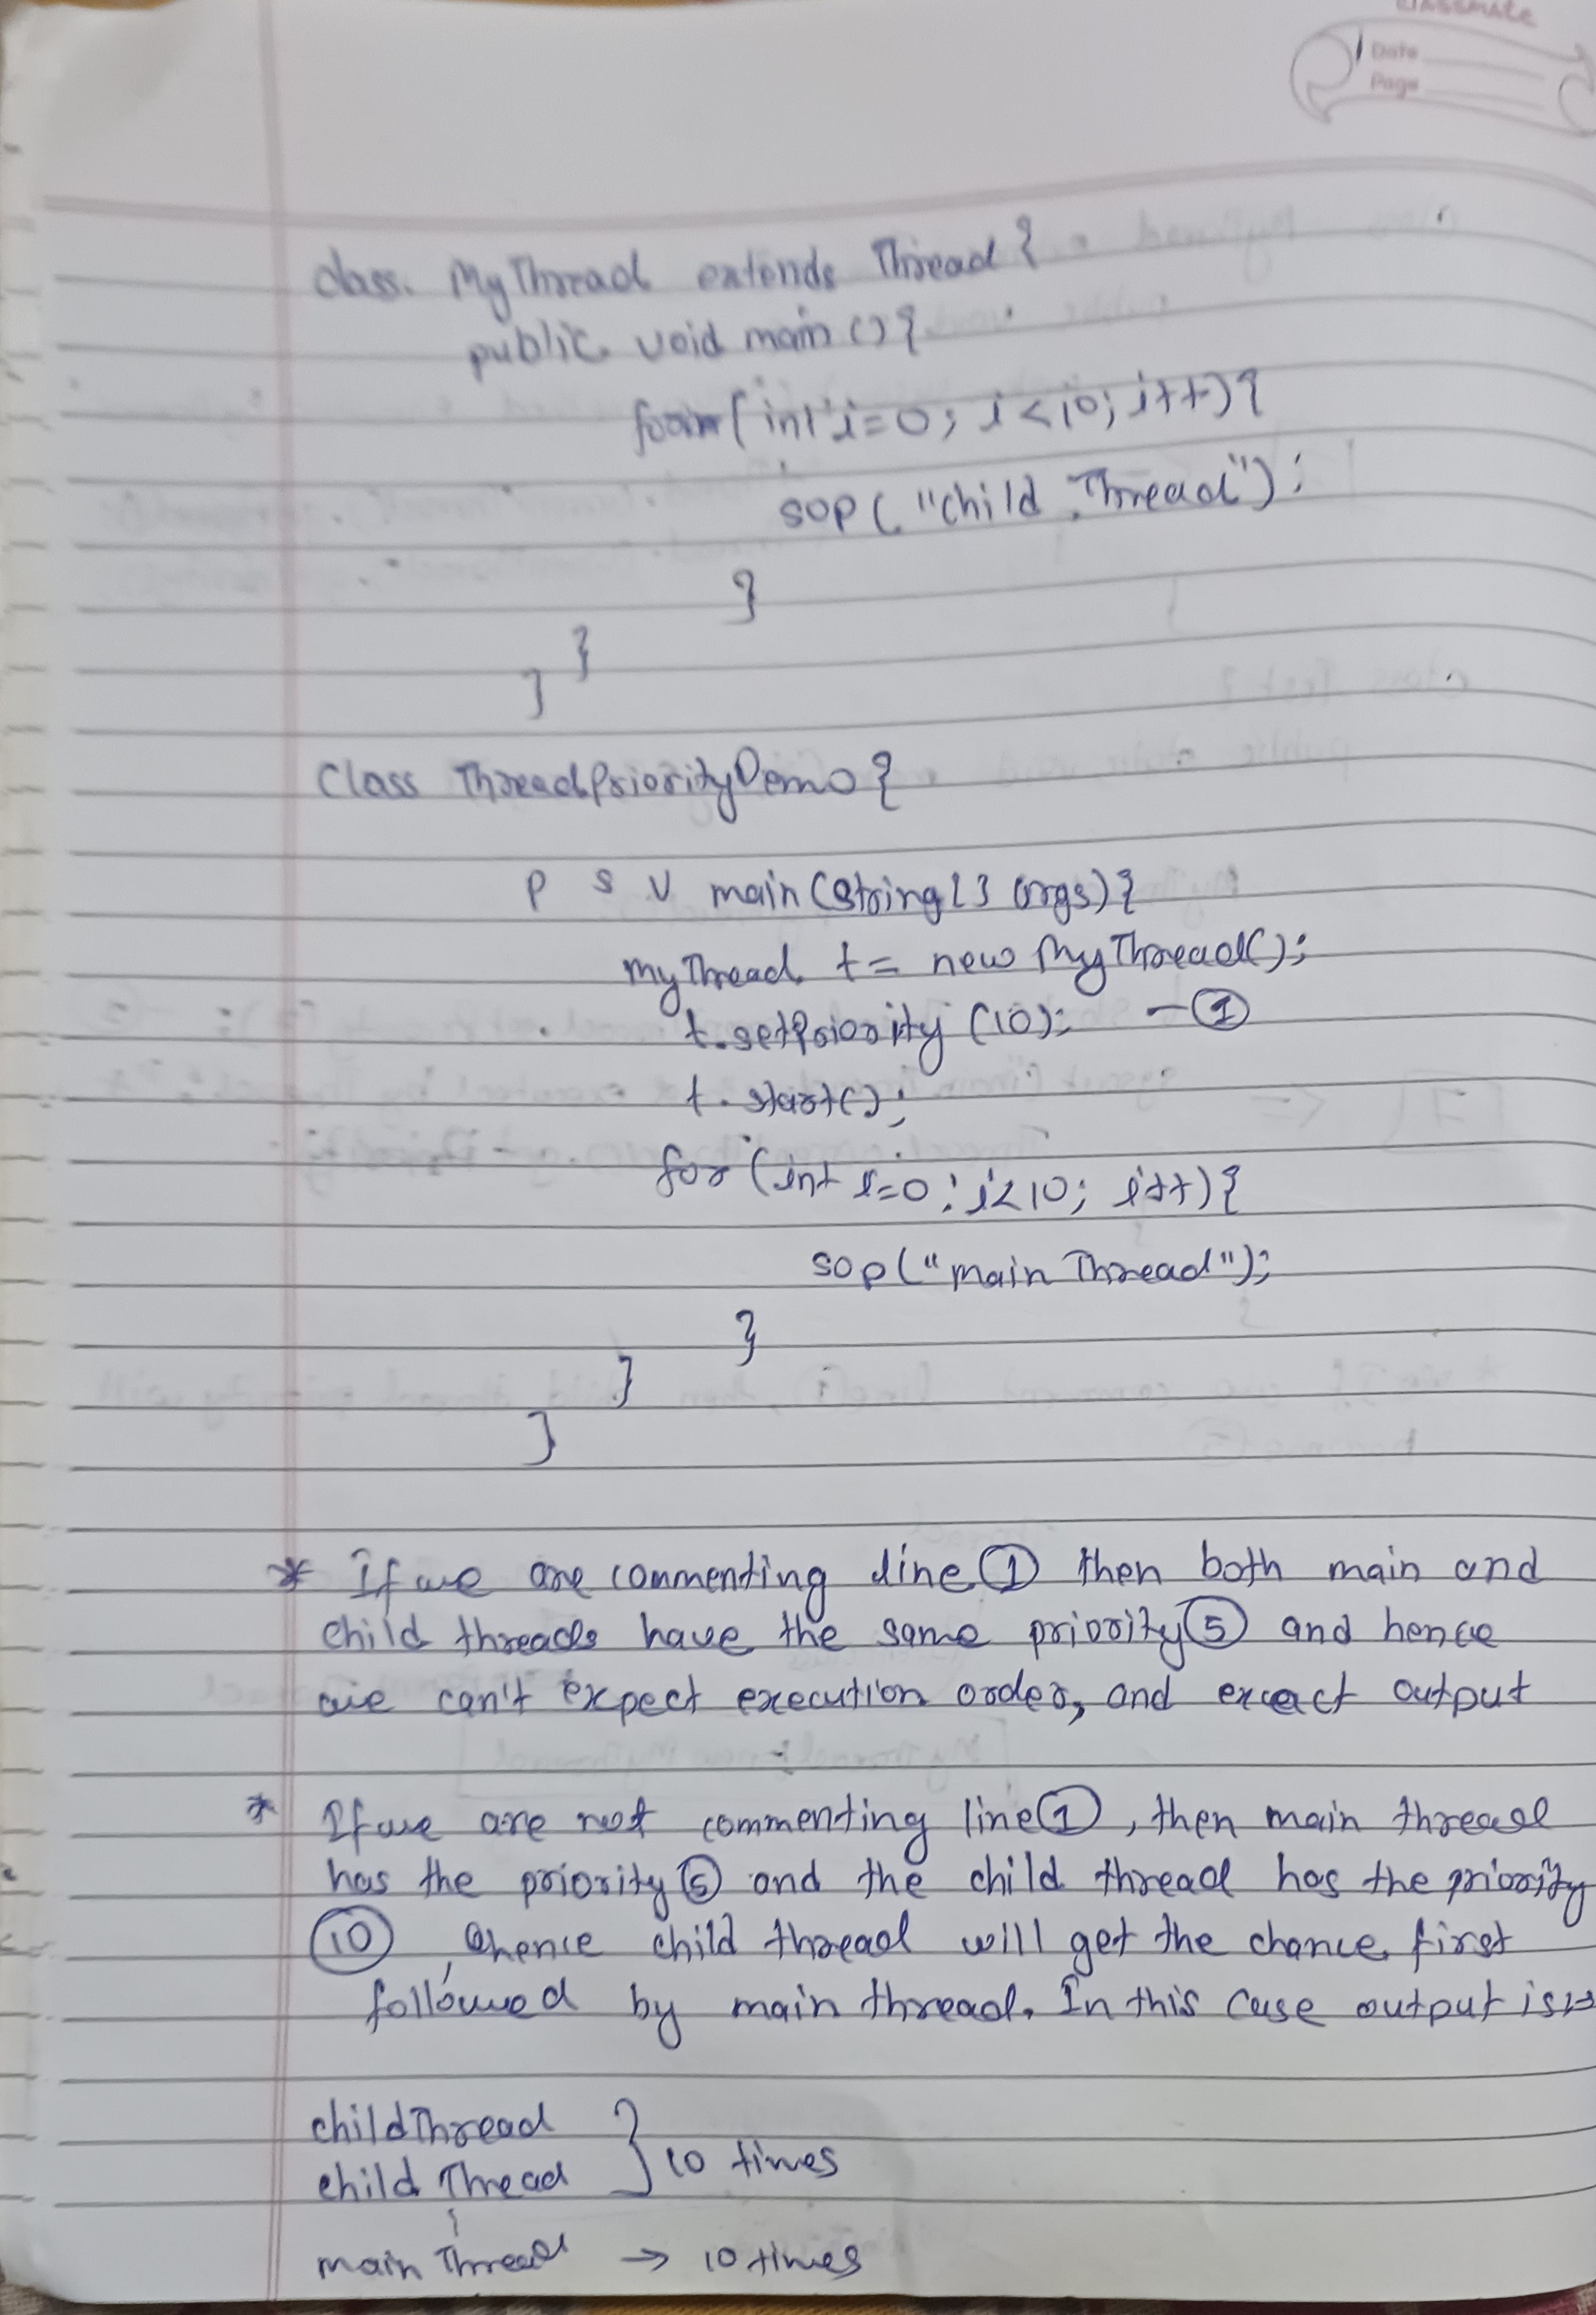 classmate
Date
Page
class MyThread extends Thread {
public void main () {
for (int i=0; i<10; i++) {
sop ("child Thread");
}
}
}
Class ThreadPriorityDemo {
P S V main (String [] args) {
MyThread t = new MyThread();
t.setPriority (10); - ①
t.start();
for (int i=0; i<10; i++) {
sop ("main Thread");
}
}
}
* If we are commenting line ① then both main and
child threads have the same priority ⑤ and hence
we can't expect execution order, and exact output
* If we are not commenting line ①, then main thread
has the priority ⑤ and the child thread has the priority
⑩, hence child thread will get the chance first
followed by main thread. In this case output is =>
childThread
child Thread } 10 times
main Thread → 10 times